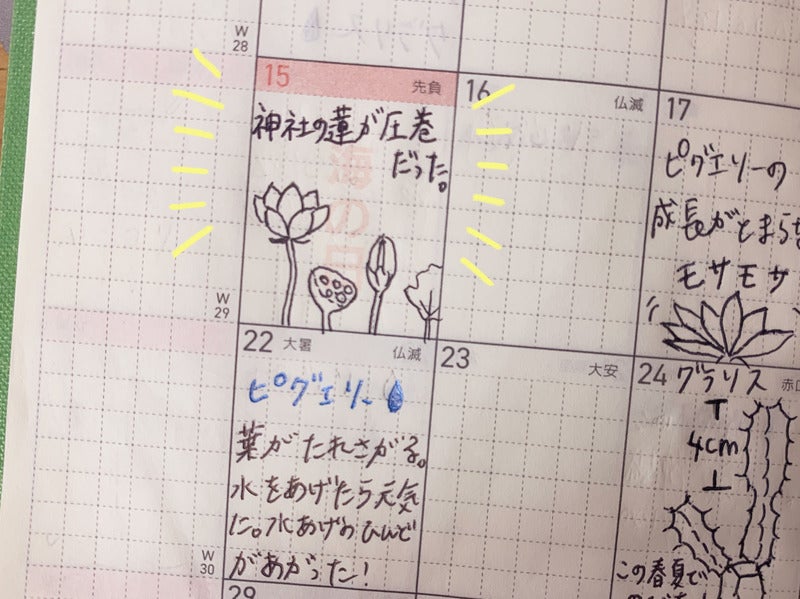 W
28
15 先負
神社の蓮が圧巻
だった。
16 仏滅
17
ピグエリーの
成長がとまらな
モサモサ
W
29
22 大暑 仏滅
ピグエリー
葉がたれさがる。
水をあげたら元気
だ。水あげのひんど
があがった!
23 大安
24 グラリス 赤口
4cm
この春夏で
W
30
29